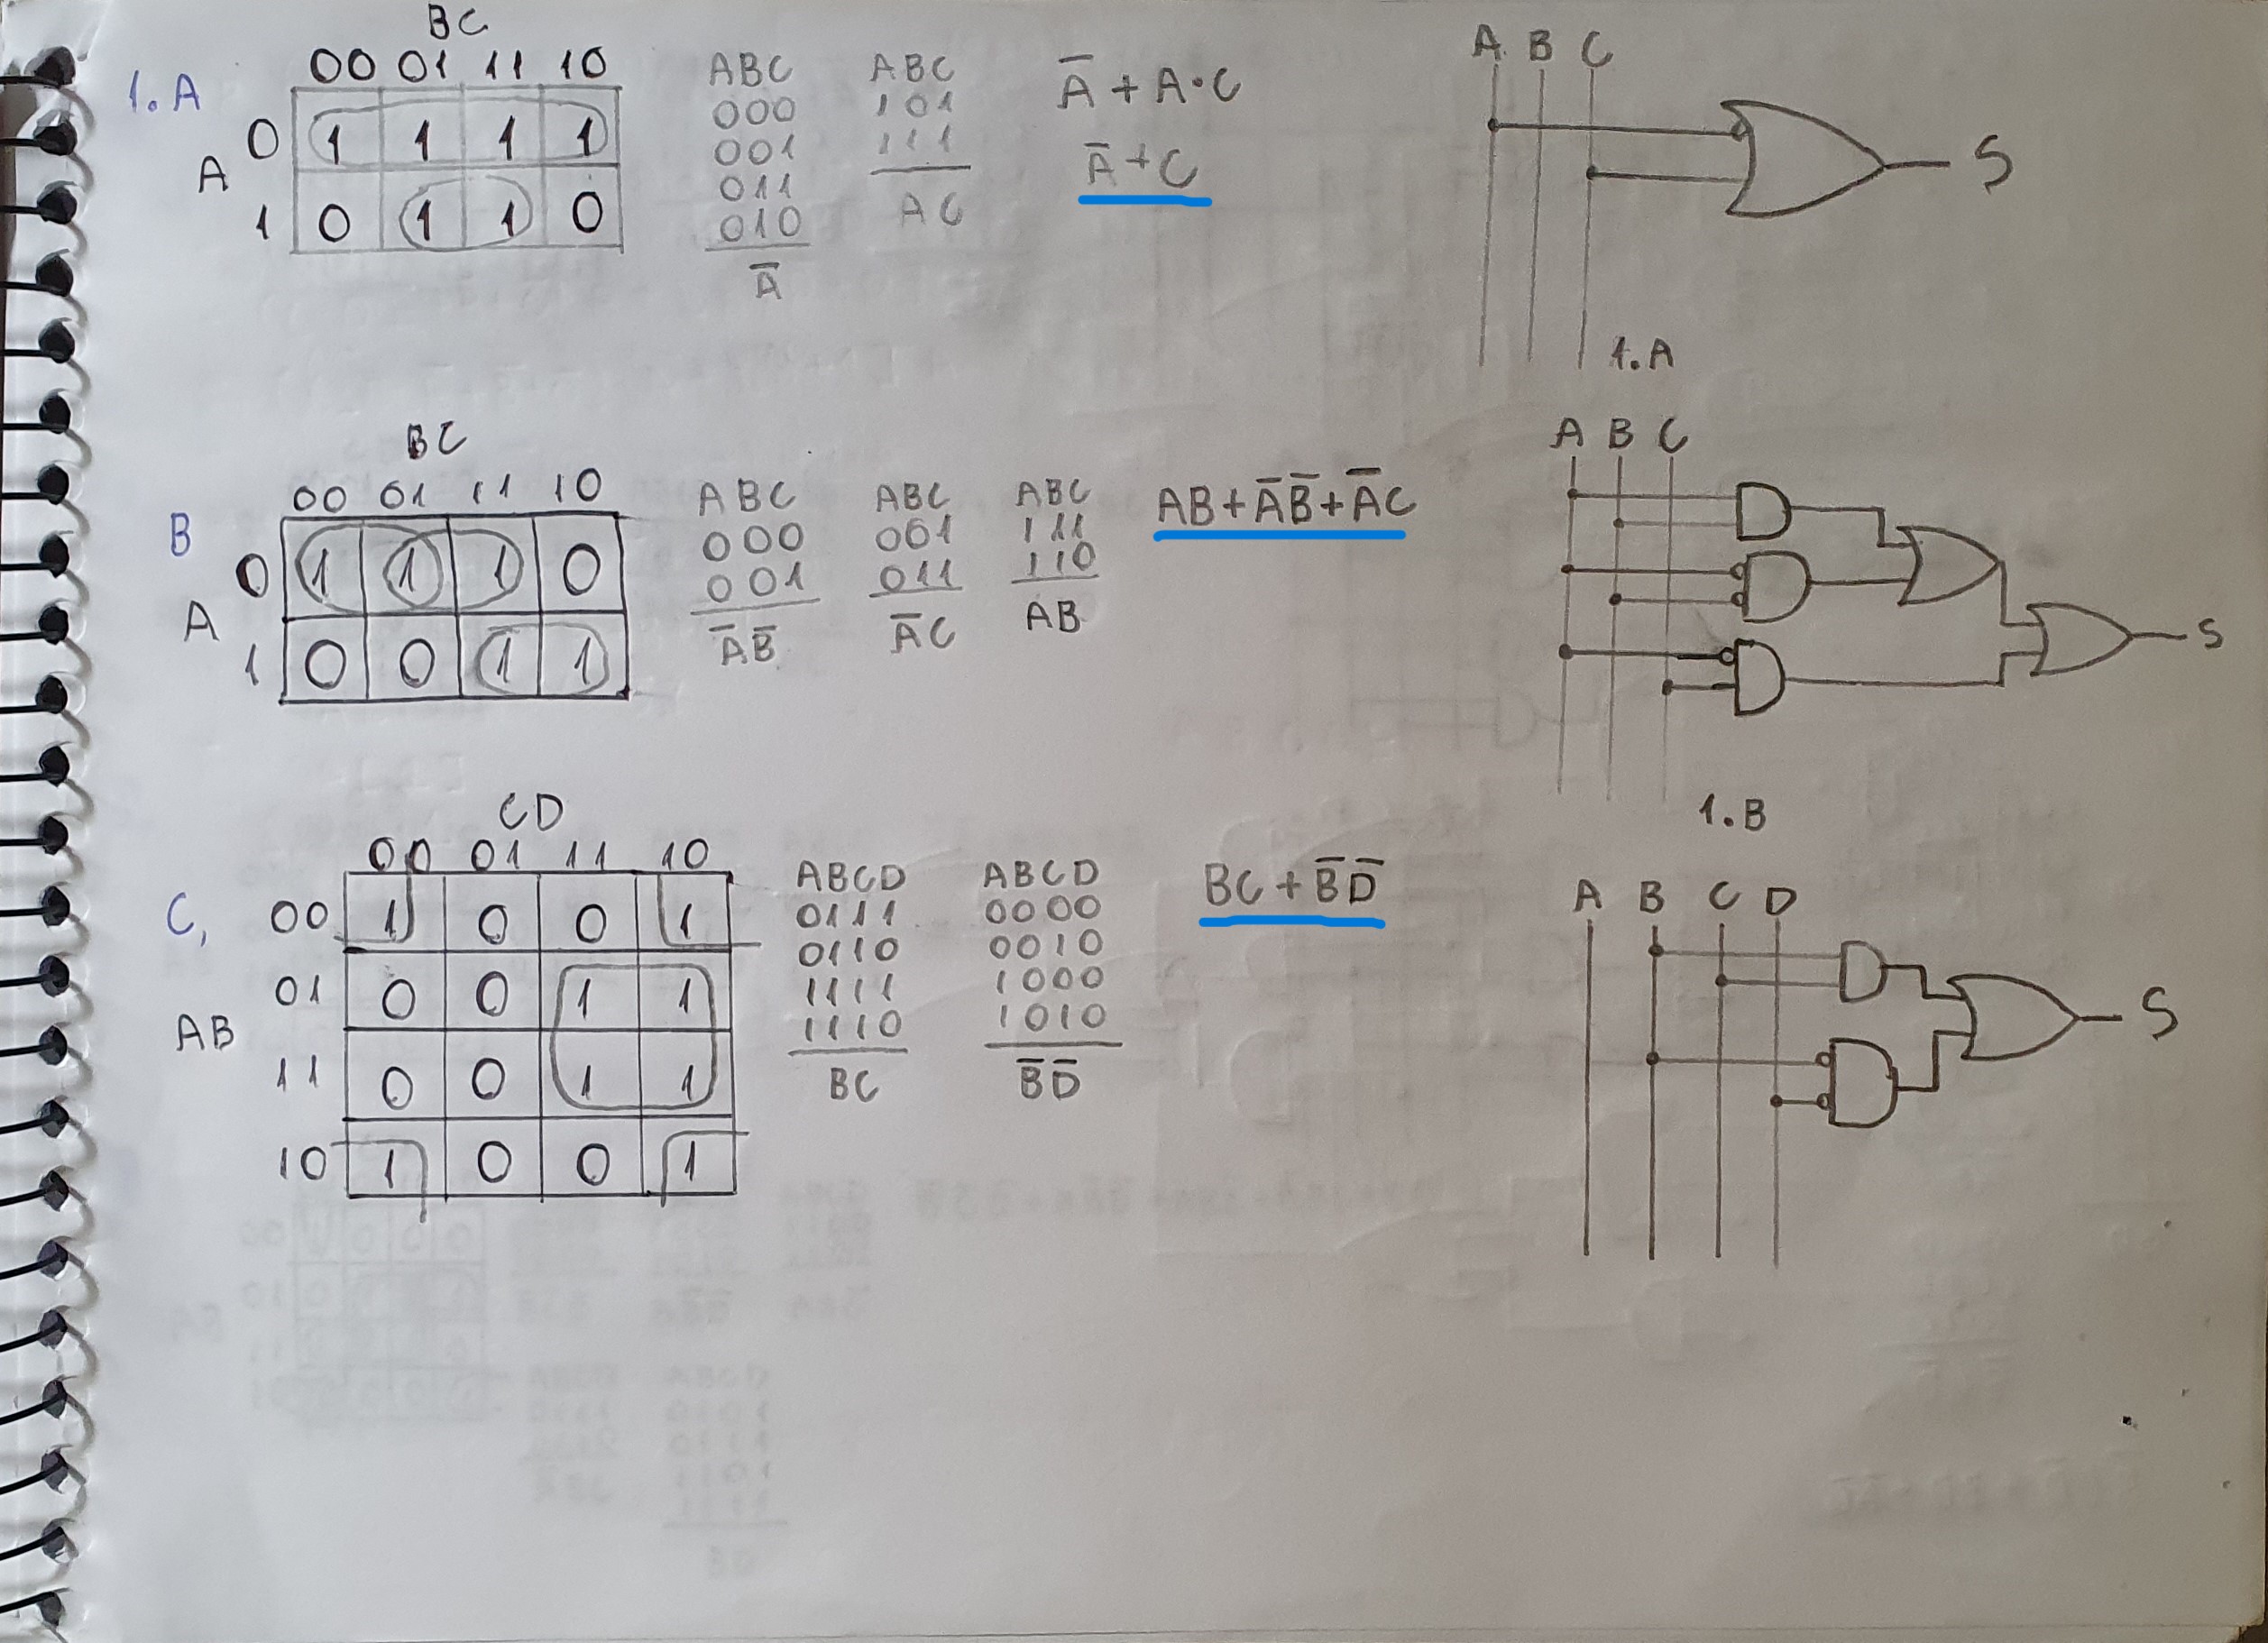 BC
00 01 11 10
1.A
A
0 1 1 1 1
1 0 1 1 0
ABC
000
001
011
010
A̅
ABC
101
111
AC
A̅ + A·C
A̅ + C
A B C
S
1.A
BC
00 01 11 10
B
A
0 1 1 1 0
1 0 0 1 1
ABC
000
001
A̅B̅
ABC
001
011
A̅C
ABC
111
110
AB
AB + A̅B̅ + A̅C
A B C
S
1.B
CD
00 01 11 10
C,
AB
00 1 0 0 1
01 0 0 1 1
11 0 0 1 1
10 1 0 0 1
ABCD
0111
0110
1111
1110
BC
ABCD
0000
0010
1000
1010
B̅D̅
BC + B̅D̅
A B C D
S